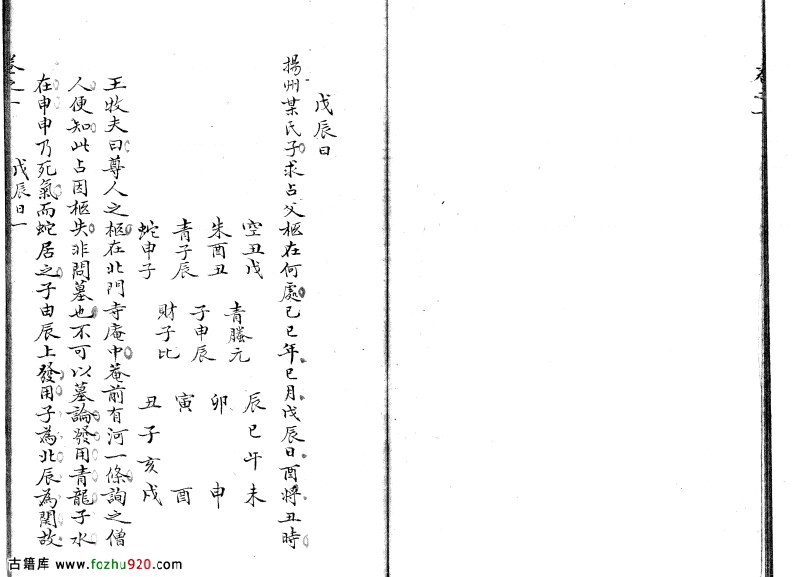 卷之一
戊辰日
揚州某氏子求占父柩在何處己巳年巳月戊辰日酉將丑時
空丑戊
朱酉丑
青子辰
蛇申子
青螣元
子申辰
財子比
辰巳午未
卯 申
寅 酉
丑子亥戌
王牧夫曰尊人之柩在北門寺庵中菴前有河一條詢之僧
人便知此占因柩失非問墓也不可以墓論發用青龍子水
在申申乃死氣而蛇居之子由辰上發用子為北辰為關故
卷之一 戊辰日一
古籍库 www.fozhu920.com